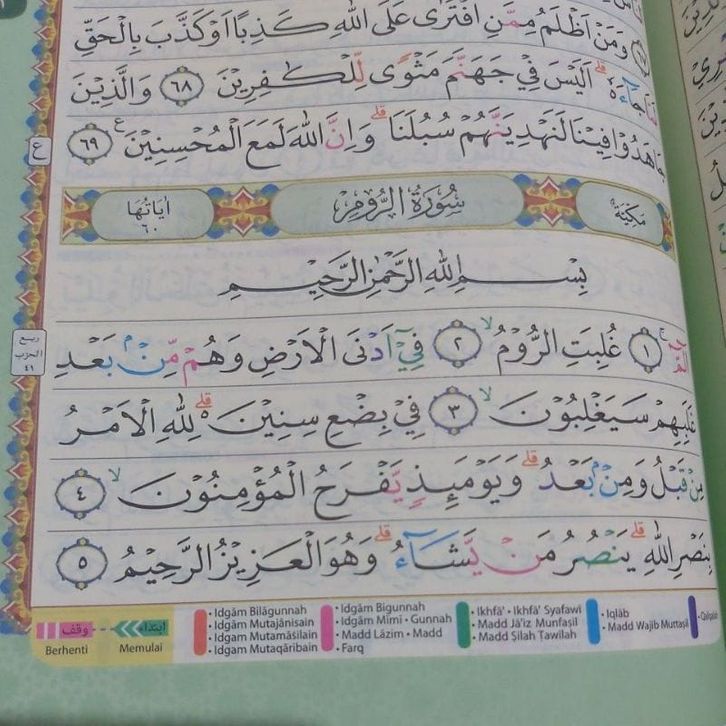 وَمَنْ اَظْلَمُ مِمَّنِ افْتَرٰى عَلَى اللّٰهِ كَذِبًا اَوْ كَذَّبَ بِالْحَقِّ
جَاۤءَهٗ ۗ اَلَيْسَ فِيْ جَهَنَّمَ مَثْوًى لِّلْكٰفِرِيْنَ ٦٨ وَالَّذِيْنَ
جَاهَدُوْا فِيْنَا لَنَهْدِيَنَّهُمْ سُبُلَنَا ۗ وَاِنَّ اللّٰهَ لَمَعَ الْمُحْسِنِيْنَ ࣖ ٦٩
ع
مَكِّيَّة سُوْرَةُ الرُّوْمِ اٰيَاتُهَا ٦٠
بِسْمِ اللّٰهِ الرَّحْمٰنِ الرَّحِيْمِ
الۤمّۤ ۚ ١ غُلِبَتِ الرُّوْمُۙ ٢ فِيْٓ اَدْنَى الْاَرْضِ وَهُمْ مِّنْۢ بَعْدِ
ربع الحزب ٤١
غَلَبِهِمْ سَيَغْلِبُوْنَۙ ٣ فِيْ بِضْعِ سِنِيْنَ ۗ لِلّٰهِ الْاَمْرُ
مِنْ قَبْلُ وَمِنْۢ بَعْدُ ۗ وَيَوْمَىِٕذٍ يَّفْرَحُ الْمُؤْمِنُوْنَۙ ٤
بِنَصْرِ اللّٰهِ ۗ يَنْصُرُ مَنْ يَّشَاۤءُ ۗ وَهُوَ الْعَزِيْزُ الرَّحِيْمُ ٥
وقف ابتداء
Berhenti Memulai
• Idgām Bilāgunnah
• Idgām Mutajānisain
• Idgam Mutamāsilain
• Idgam Mutaqāribain
• Idgām Bigunnah
• Idgām Mīmi • Gunnah
• Madd Lāzim • Madd
• Farq
• Ikhfā' • Ikhfā' Syafawi
• Madd Jā'iz Munfaṣil
• Madd Ṣilah Ṭawīlah
• Iqlāb
• Madd Wajib Muttaṣil